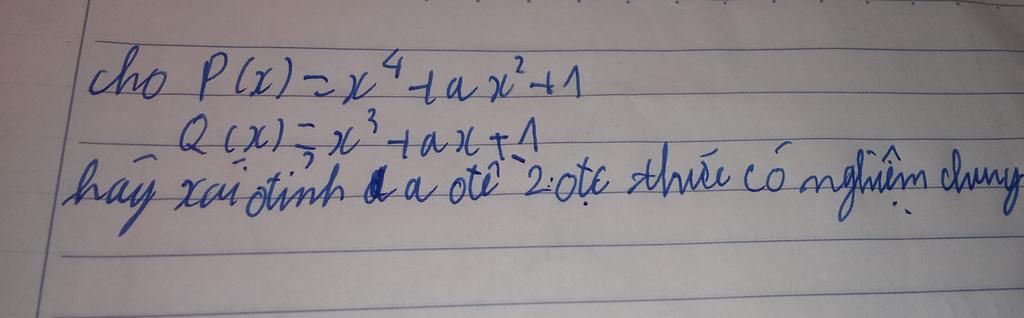 cho P(x) = x⁴ + ax² + 1
Q(x) = x³ + ax + 1
hãy xác định a để 2 đa thức có nghiệm chung